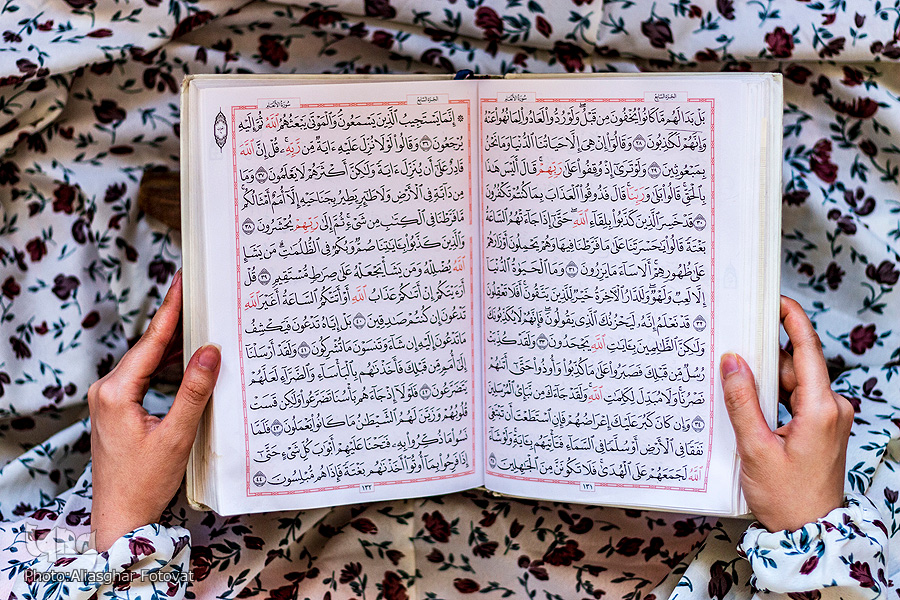 الجزء السابع
سورة الأنعام
بَلْ بَدَا لَهُم مَّا كَانُوا۟ يُخْفُونَ مِن قَبْلُ ۖ وَلَوْ رُدُّوا۟ لَعَادُوا۟ لِمَا نُهُوا۟ عَنْهُ
وَإِنَّهُمْ لَكَـٰذِبُونَ ٢٨ وَقَالُوٓا۟ إِنْ هِىَ إِلَّا حَيَاتُنَا ٱلدُّنْيَا وَمَا نَحْنُ
بِمَبْعُوثِينَ ٢٩ وَلَوْ تَرَىٰٓ إِذْ وُقِفُوا۟ عَلَىٰ رَبِّهِمْ ۚ قَالَ أَلَيْسَ هَـٰذَا
بِٱلْحَقِّ ۚ قَالُوا۟ بَلَىٰ وَرَبِّنَا ۚ قَالَ فَذُوقُوا۟ ٱلْعَذَابَ بِمَا كُنتُمْ تَكْفُرُونَ
٣٠ قَدْ خَسِرَ ٱلَّذِينَ كَذَّبُوا۟ بِلِقَآءِ ٱللَّهِ ۖ حَتَّىٰٓ إِذَا جَآءَتْهُمُ ٱلسَّاعَةُ
بَغْتَةً قَالُوا۟ يَـٰحَسْرَتَنَا عَلَىٰ مَا فَرَّطْنَا فِيهَا وَهُمْ يَحْمِلُونَ أَوْزَارَهُمْ
عَلَىٰ ظُهُورِهِمْ ۚ أَلَا سَآءَ مَا يَزِرُونَ ٣١ وَمَا ٱلْحَيَوٰةُ ٱلدُّنْيَآ
إِلَّا لَعِبٌ وَلَهْوٌ ۖ وَلَلدَّارُ ٱلْـَٔاخِرَةُ خَيْرٌ لِّلَّذِينَ يَتَّقُونَ ۗ أَفَلَا تَعْقِلُونَ
٣٢ قَدْ نَعْلَمُ إِنَّهُۥ لَيَحْزُنُكَ ٱلَّذِى يَقُولُونَ ۖ فَإِنَّهُمْ لَا يُكَذِّبُونَكَ
وَلَـٰكِنَّ ٱلظَّـٰلِمِينَ بِـَٔايَـٰتِ ٱللَّهِ يَجْحَدُونَ ٣٣ وَلَقَدْ كُذِّبَتْ
رُسُلٌ مِّن قَبْلِكَ فَصَبَرُوا۟ عَلَىٰ مَا كُذِّبُوا۟ وَأُوذُوا۟ حَتَّىٰٓ أَتَىٰهُمْ
نَصْرُنَا ۚ وَلَا مُبَدِّلَ لِكَلِمَـٰتِ ٱللَّهِ ۚ وَلَقَدْ جَآءَكَ مِن نَّبَإِى۟ ٱلْمُرْسَلِينَ
٣٤ وَإِن كَانَ كَبُرَ عَلَيْكَ إِعْرَاضُهُمْ فَإِنِ ٱسْتَطَعْتَ أَن تَبْتَغِىَ
نَفَقًا فِى ٱلْأَرْضِ أَوْ سُلَّمًا فِى ٱلسَّمَآءِ فَتَأْتِيَهُم بِـَٔايَةٍ ۚ وَلَوْ شَآءَ
ٱللَّهُ لَجَمَعَهُمْ عَلَى ٱلْهُدَىٰ ۚ فَلَا تَكُونَنَّ مِنَ ٱلْجَـٰهِلِينَ ٣٥
١٣١
الجزء السابع
سورة الأنعام
۞ إِنَّمَا يَسْتَجِيبُ ٱلَّذِينَ يَسْمَعُونَ ۘ وَٱلْمَوْتَىٰ يَبْعَثُهُمُ ٱللَّهُ ثُمَّ إِلَيْهِ
يُرْجَعُونَ ٣٦ وَقَالُوا۟ لَوْلَا نُزِّلَ عَلَيْهِ ءَايَةٌ مِّن رَّبِّهِۦ ۚ قُلْ إِنَّ ٱللَّهَ
قَادِرٌ عَلَىٰٓ أَن يُنَزِّلَ ءَايَةً وَلَـٰكِنَّ أَكْثَرَهُمْ لَا يَعْلَمُونَ ٣٧ وَمَا
مِن دَآبَّةٍ فِى ٱلْأَرْضِ وَلَا طَـٰٓئِرٍ يَطِيرُ بِجَنَاحَيْهِ إِلَّآ أُمَمٌ أَمْثَالُكُم ۚ
مَّا فَرَّطْنَا فِى ٱلْكِتَـٰبِ مِن شَىْءٍ ۚ ثُمَّ إِلَىٰ رَبِّهِمْ يُحْشَرُونَ ٣٨
وَٱلَّذِينَ كَذَّبُوا۟ بِـَٔايَـٰتِنَا صُمٌّ وَبُكْمٌ فِى ٱلظُّلُمَـٰتِ ۗ مَن يَشَإِ
ٱللَّهُ يُضْلِلْهُ وَمَن يَشَأْ يَجْعَلْهُ عَلَىٰ صِرَٰطٍ مُّسْتَقِيمٍ ٣٩ قُلْ
أَرَءَيْتَكُمْ إِنْ أَتَىٰكُمْ عَذَابُ ٱللَّهِ أَوْ أَتَتْكُمُ ٱلسَّاعَةُ أَغَيْرَ ٱللَّهِ
تَدْعُونَ إِن كُنتُمْ صَـٰدِقِينَ ٤٠ بَلْ إِيَّاهُ تَدْعُونَ فَيَكْشِفُ
مَا تَدْعُونَ إِلَيْهِ إِن شَآءَ وَتَنسَوْنَ مَا تُشْرِكُونَ ٤١ وَلَقَدْ أَرْسَلْنَآ
إِلَىٰٓ أُمَمٍ مِّن قَبْلِكَ فَأَخَذْنَـٰهُم بِٱلْبَأْسَآءِ وَٱلضَّرَّآءِ لَعَلَّهُمْ
يَتَضَرَّعُونَ ٤٢ فَلَوْلَآ إِذْ جَآءَهُم بَأْسُنَا تَضَرَّعُوا۟ وَلَـٰكِن قَسَتْ
قُلُوبُهُمْ وَزَيَّنَ لَهُمُ ٱلشَّيْطَـٰنُ مَا كَانُوا۟ يَعْمَلُونَ ٤٣ فَلَمَّا
نَسُوا۟ مَا ذُكِّرُوا۟ بِهِۦ فَتَحْنَا عَلَيْهِمْ أَبْوَٰبَ كُلِّ شَىْءٍ حَتَّىٰٓ
إِذَا فَرِحُوا۟ بِمَآ أُوتُوٓا۟ أَخَذْنَـٰهُم بَغْتَةً فَإِذَا هُم مُّبْلِسُونَ ٤٤
١٣٢
iqna
Photo:Aliasghar Fotovat